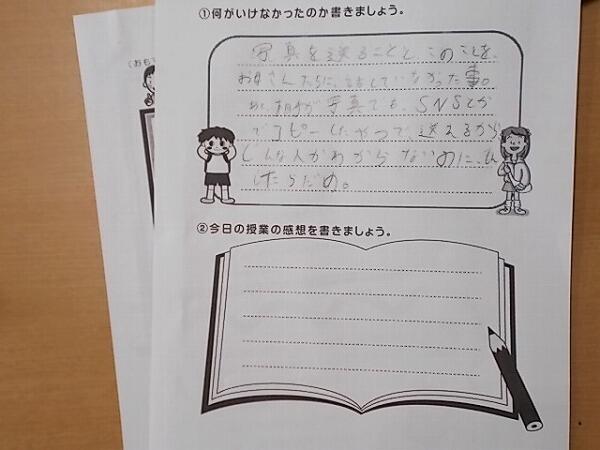 ①何がいけなかったのか書きましょう。
写真を送ることと、このことを、
お母さんたちに、話していなかった事。
相手が写真でも、SNSとか
でコピーしたやつで、送えるから
どんな人かわからないのに、
したらだめ。
②今日の授業の感想を書きましょう。
(おも